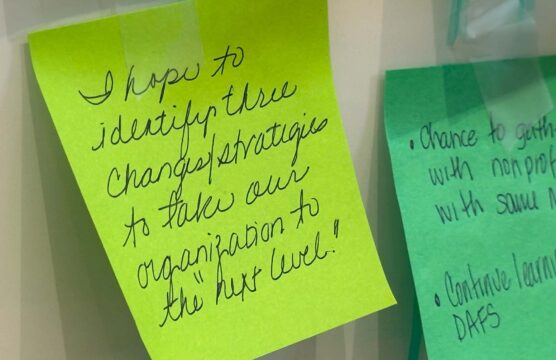 I hope to
identify three
changes/strategies
to take our
organization to
the "next level."
• Chance to
with
with same
• Continue
DAFS